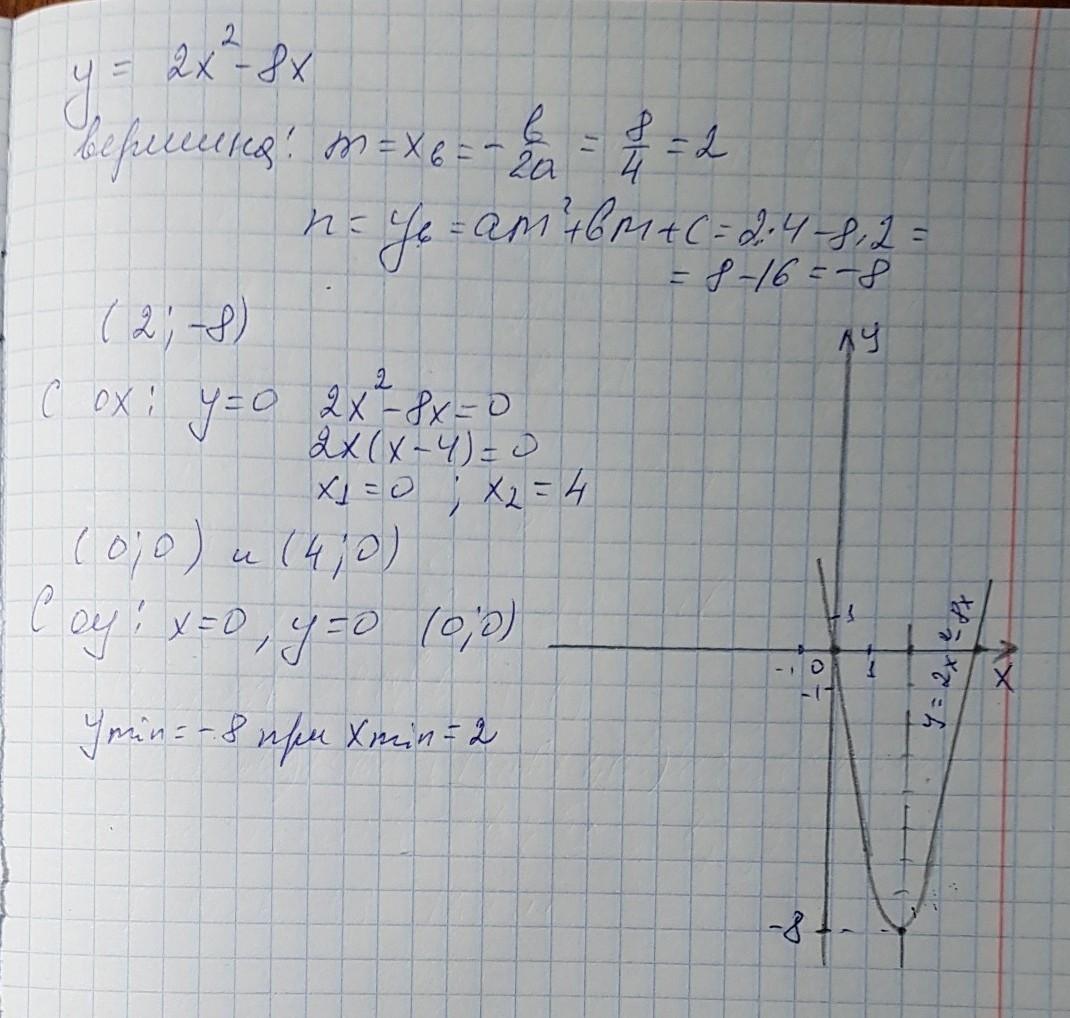 y = 2x² - 8x
вершина: m = xв = - в/2a = 8/4 = 2
n = yв = am² + вm + c = 2·4 - 8·2 =
= 8 - 16 = -8
(2; -8)
С ох: y=0 2x² - 8x = 0
2x(x-4) = 0
x₁ = 0 ; x₂ = 4
(0;0) и (4;0)
С оу: x=0, y=0 (0;0)
y min = -8 при x min = 2
y
1
-1 0 1 x
-1
y = 2x² - 8x
-8